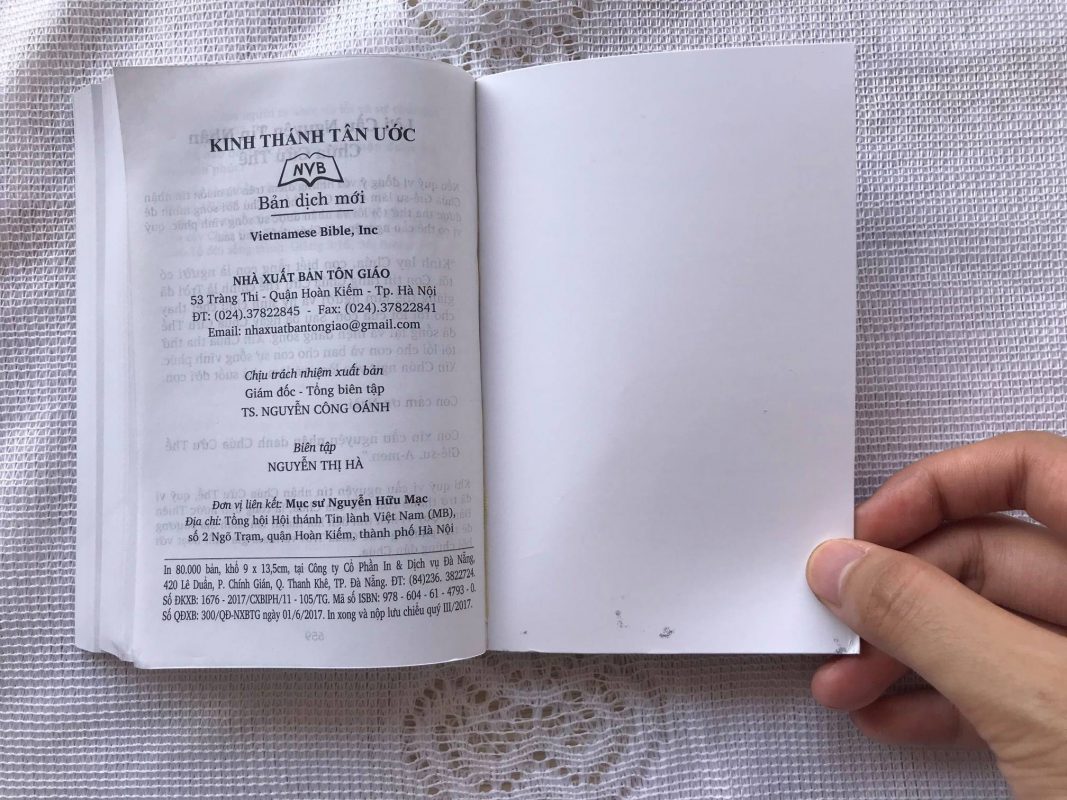 KINH THÁNH TÂN ƯỚC
NVB
Bản dịch mới
Vietnamese Bible, Inc
NHÀ XUẤT BẢN TÔN GIÁO
53 Tràng Thi - Quận Hoàn Kiếm - Tp. Hà Nội
ĐT: (024).37822845 - Fax: (024).37822841
Email: nhaxuatbantongiao@gmail.com
Chịu trách nhiệm xuất bản
Giám đốc - Tổng biên tập
TS. NGUYỄN CÔNG OÁNH
Biên tập
NGUYỄN THỊ HÀ
Đơn vị liên kết: Mục sư Nguyễn Hữu Mạc
Địa chỉ: Tổng hội Hội thánh Tin lành Việt Nam (MB),
số 2 Ngõ Trạm, quận Hoàn Kiếm, thành phố Hà Nội
In 80.000 bản, khổ 9 x 13,5cm, tại Công ty Cổ Phần In & Dịch vụ Đà Nẵng,
420 Lê Duẩn, P. Chính Gián, Q. Thanh Khê, TP. Đà Nẵng. ĐT: (84)236. 3822724.
Số ĐKXB: 1676 - 2017/CXBIPH/11 - 105/TG. Mã số ISBN: 978 - 604 - 61 - 4793 - 0.
Số QĐXB: 300/QĐ-NXBTG ngày 01/6/2017. In xong và nộp lưu chiểu quý III/2017.